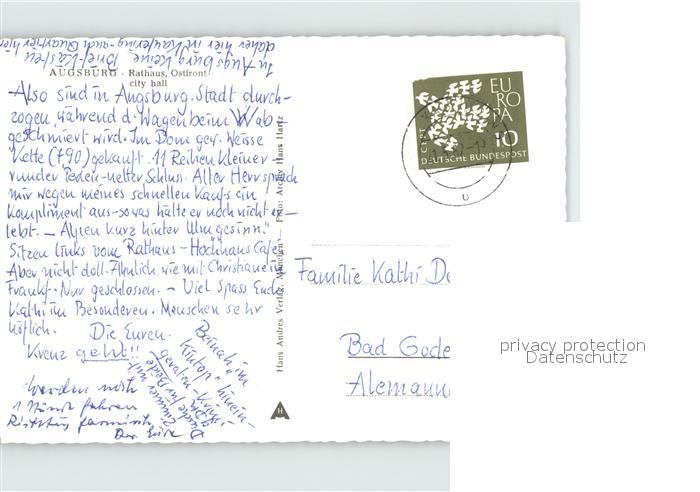 In Augsburg keine Brief-Kästen
daher hier in Kaufering - auch Quartier hier
AUGSBURG · Rathaus, Ostfront
city hall
Also sind in Augsburg. Stadt durch-
zogen, während d. Wagen beim Wab
geschmiert wird. Im Dom gew. Weisse
Kette (7.90) gekauft. 11 Reihen kleiner
runder Perlen-netter Schluss. Alter Herr sprach
mir wegen meines schnellen Kaufs ein
Kompliment aus - sowas hätte er noch nicht er-
lebt. - Alpen kurz hinter Ulm gesehn.
Sitzen links vom Rathaus - Hochhaus Café
Aber nicht doll. Ähnlich wie mit Christiane in
Frankf. Nur geschlossen. - Viel Spass Euch
Kathi im Besonderen. Menschen sehr
höflich. Die Euren.
Kreuz geht!!
Beinah im
"Kintop" hinein-
werden noch
1 Stund fahren
Richtung
Hans Andres Verlag, München - Foto: Archiv Hans Hartz
EUROPA
CEPT
10
DEUTSCHE BUNDESPOST
Familie Kathi De
Bad Gode
Alemann
privacy protection
Datenschutz